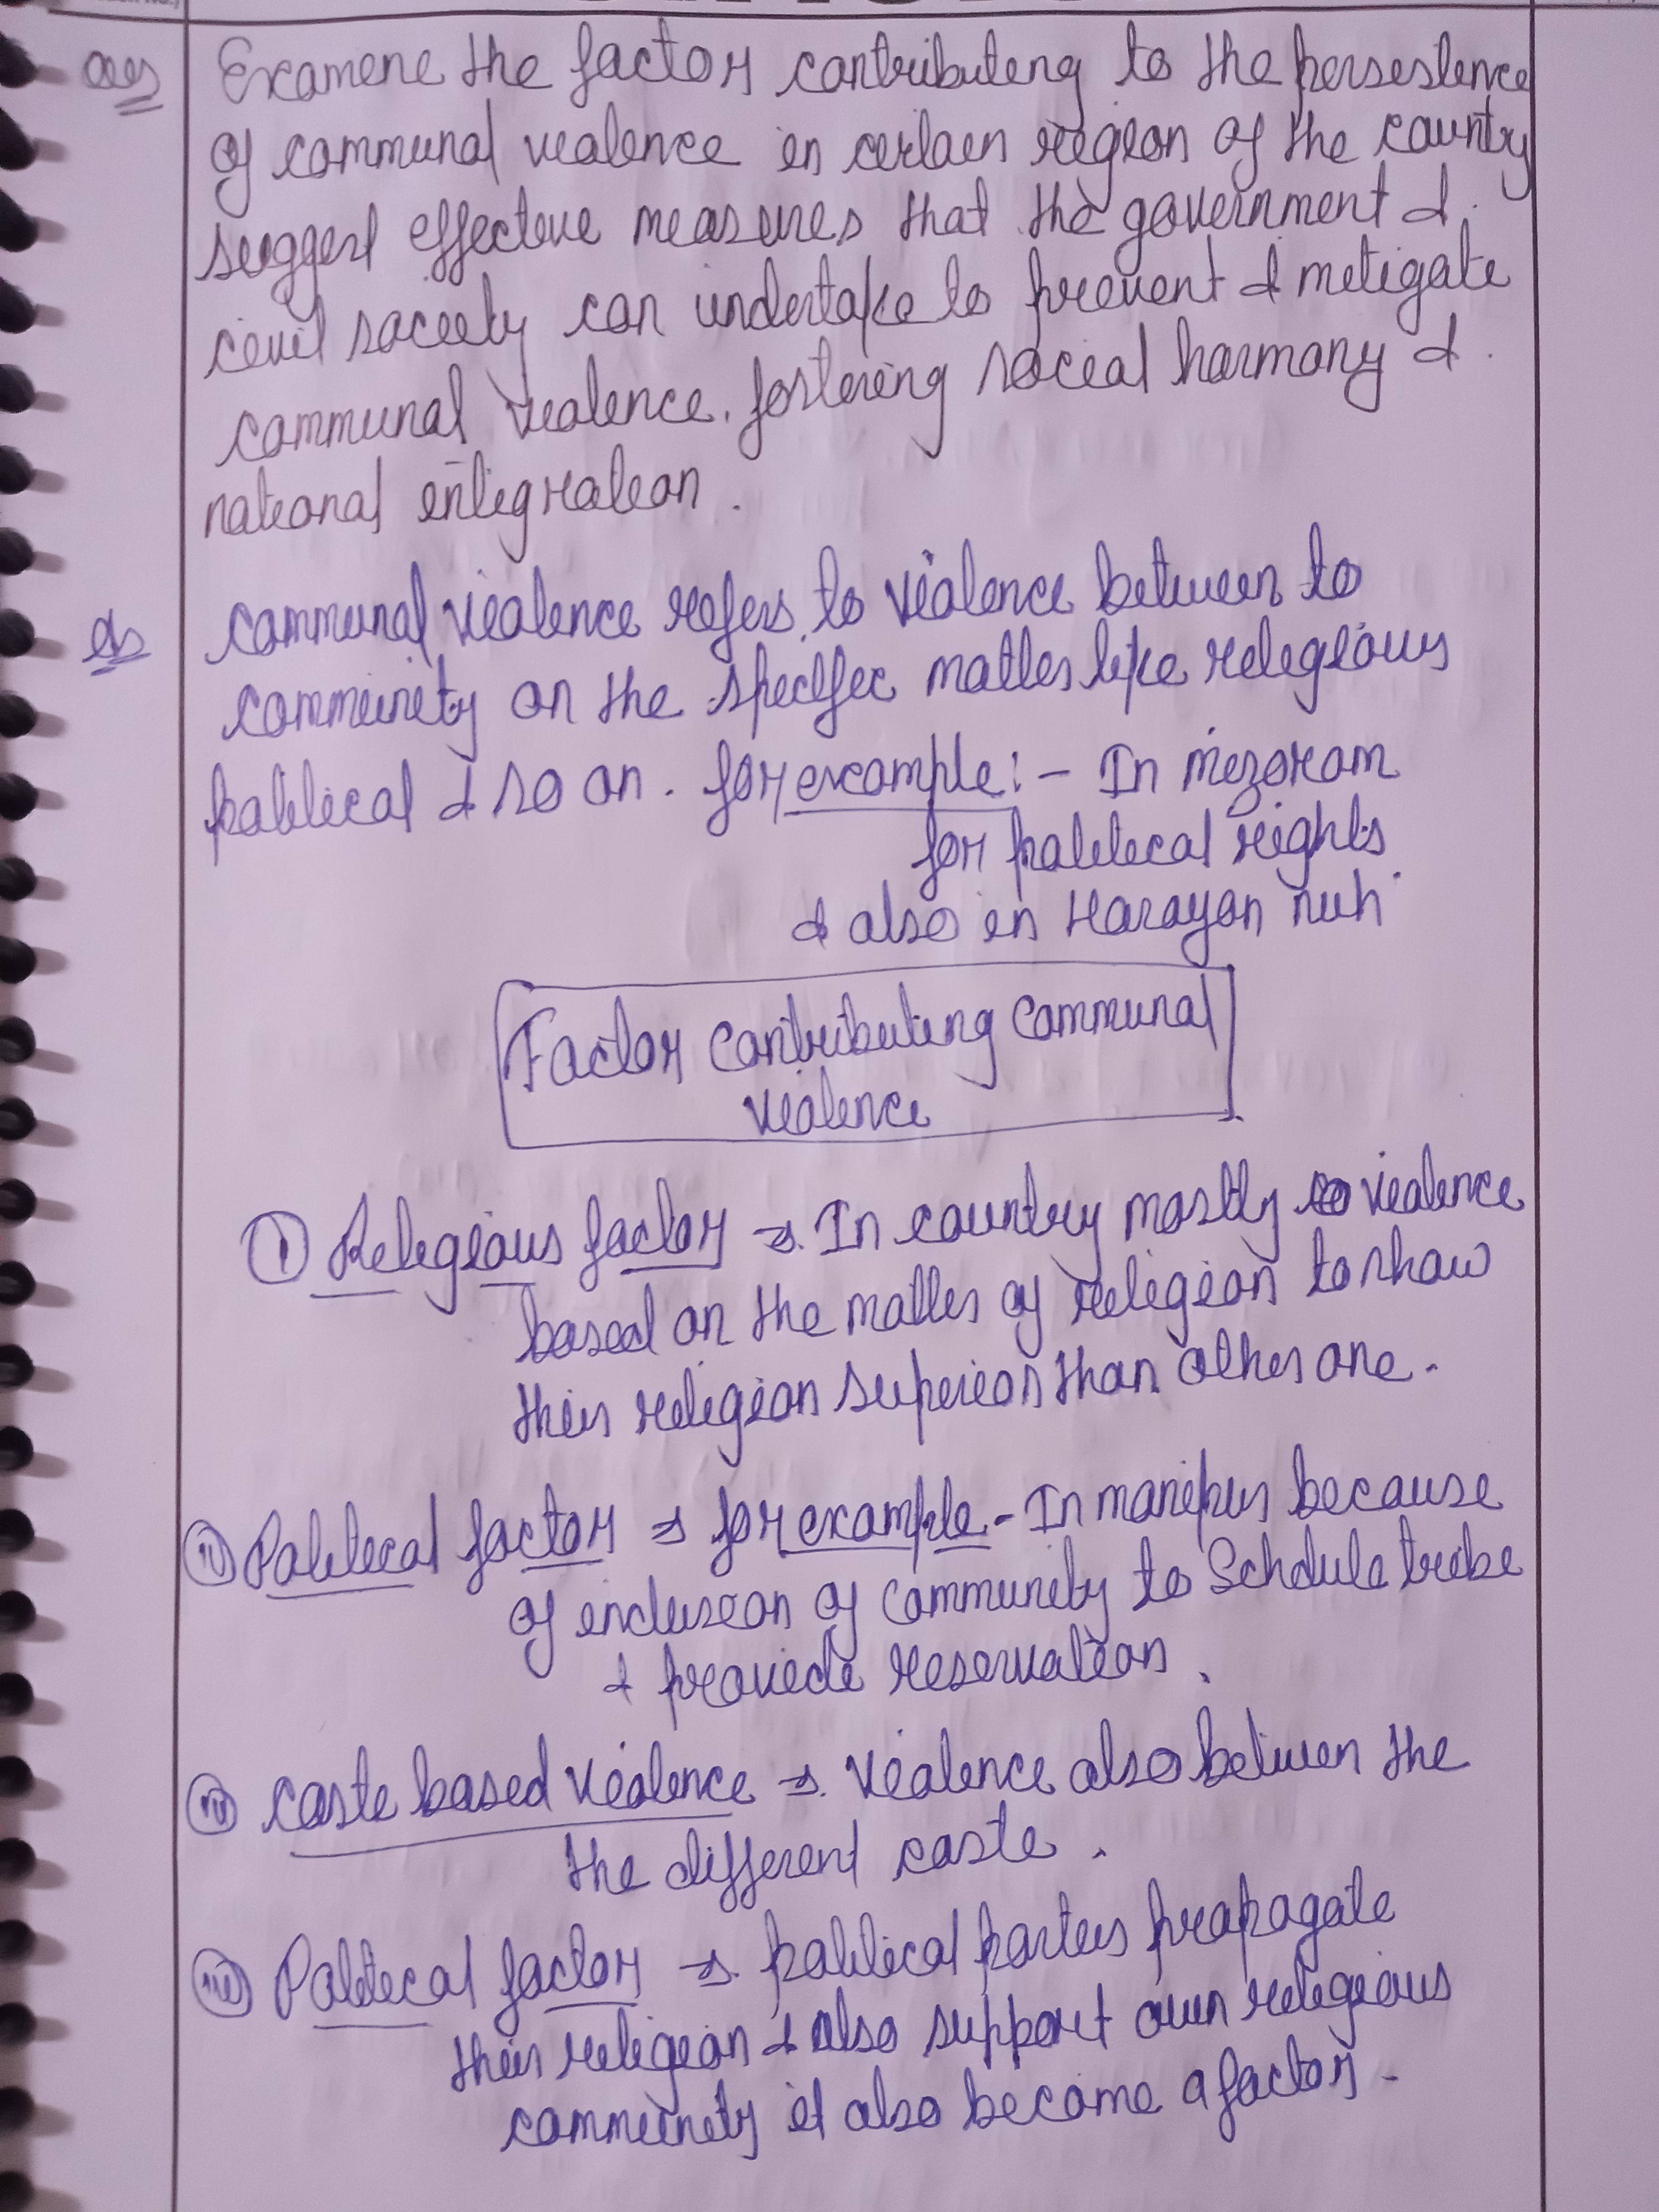 Ques Examine the factor contributing to the persistence
of communal violence in certain region of the country
suggest effective measures that the government &
civil society can undertake to prevent & mitigate
communal violence. fostering social harmony &
national integration.
Ans communal violence refers to violence between to
community on the specific matter like religious
political & so on. for example:- In mizoram
for political rights
& also in Harayan nuh
Factor contributing communal
violence
(i) Religious factor ⇒ In country mostly violence
based on the matter of religion to show
their religion superior than other one.
(ii) Political factor ⇒ for example - In manipur because
of inclusion of community to Schdule tribe
& provide reservation.
caste based violence ⇒ violence also between the
the different caste.
(iii) Political factor ⇒ political parties propagate
their religion & also support own religious
community it also become a factor.